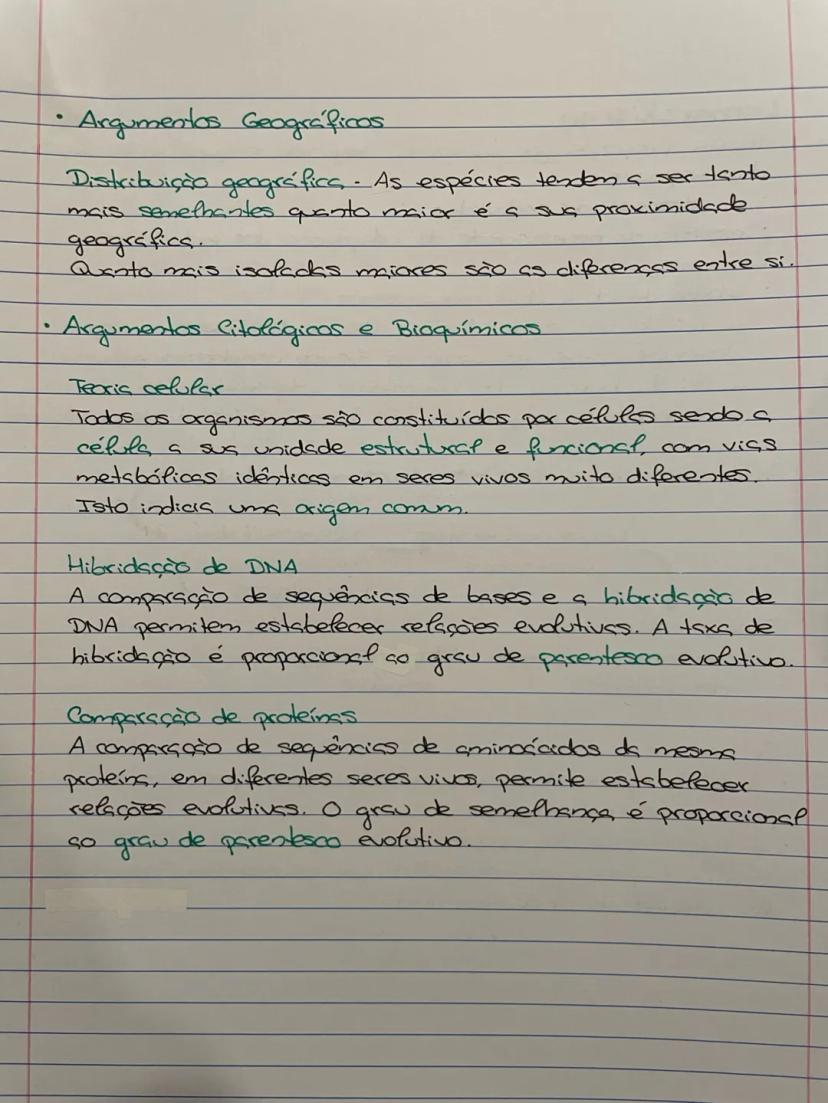 • Argumentos Geográficos
Distribuição geográfica - As espécies tendem a ser tanto
mais semelhantes quanto maior é a sua proximidade
geográfica.
Quanto mais isoladas maiores são as diferenças entre si.
• Argumentos Citológicos e Bioquímicos
Teoria celular
Todos os organismos são constituídos por células sendo a
célula a sua unidade estrutural e funcional, com vias
metabólicas idênticas em seres vivos muito diferentes.
Isto indicia uma origem comum.
Hibridação de DNA
A comparação de sequências de bases e a hibridação de
DNA permitem estabelecer relações evolutivas. A taxa de
hibridação é proporcional ao grau de parentesco evolutivo.
Comparação de proteínas
A comparação de sequências de aminoácidos da mesma
proteína, em diferentes seres vivos, permite estabelecer
relações evolutivas. O grau de semelhança é proporcional
ao grau de parentesco evolutivo.